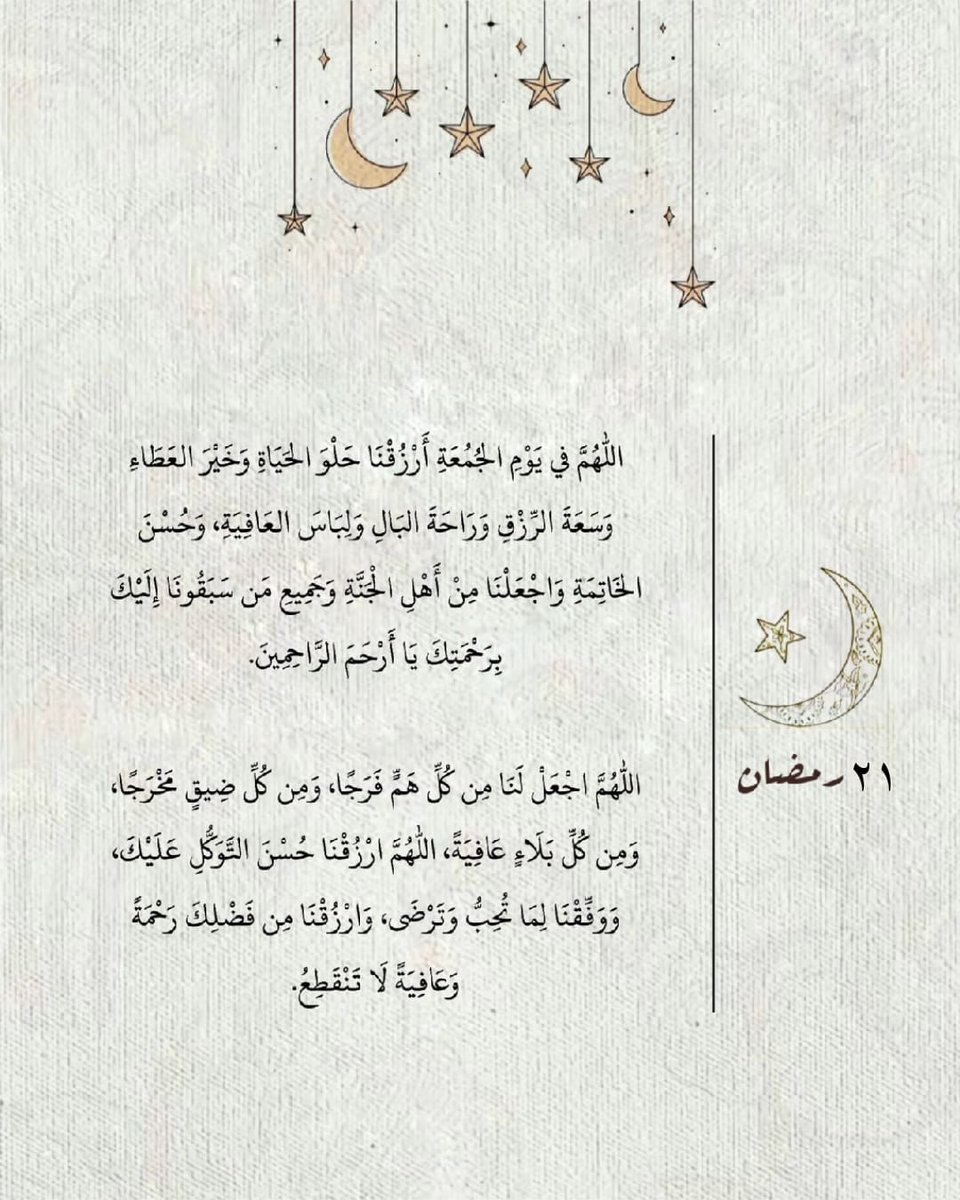 اللّٰهُمَّ في يَوْمِ الجُمُعَةِ أَرْزُقْنَا حَلْوَ الحَيَاةِ وَخَيْرَ العَطَاءِ
وَسَعَةَ الرِّزْقِ وَرَاحَةَ البَالِ وَلِبَاسَ العَافِيَةِ، وَحُسْنَ
الخَاتِمَةِ وَاجْعَلْنَا مِنْ أَهْلِ الْجَنَّةِ وَجَمِيعِ مَن سَبَقُونَا إِلَيْكَ
بِرَحْمَتِكَ يَا أَرْحَمَ الرَّاحِمِينَ.
اللّٰهُمَّ اجْعَلْ لَنَا مِن كُلِّ هَمٍّ فَرَجًا، وَمِن كُلِّ ضِيقٍ مَخْرَجًا،
وَمِن كُلِّ بَلَاءٍ عَافِيَةً، اللّٰهُمَّ ارْزُقْنَا حُسْنَ التَّوَكُّلِ عَلَيْكَ،
وَوَفِّقْنَا لِمَا تُحِبُّ وَتَرْضَى، وَارْزُقْنَا مِن فَضْلِكَ رَحْمَةً
وَعَافِيَةً لَا تَنْقَطِعُ.
٢١ رمضان